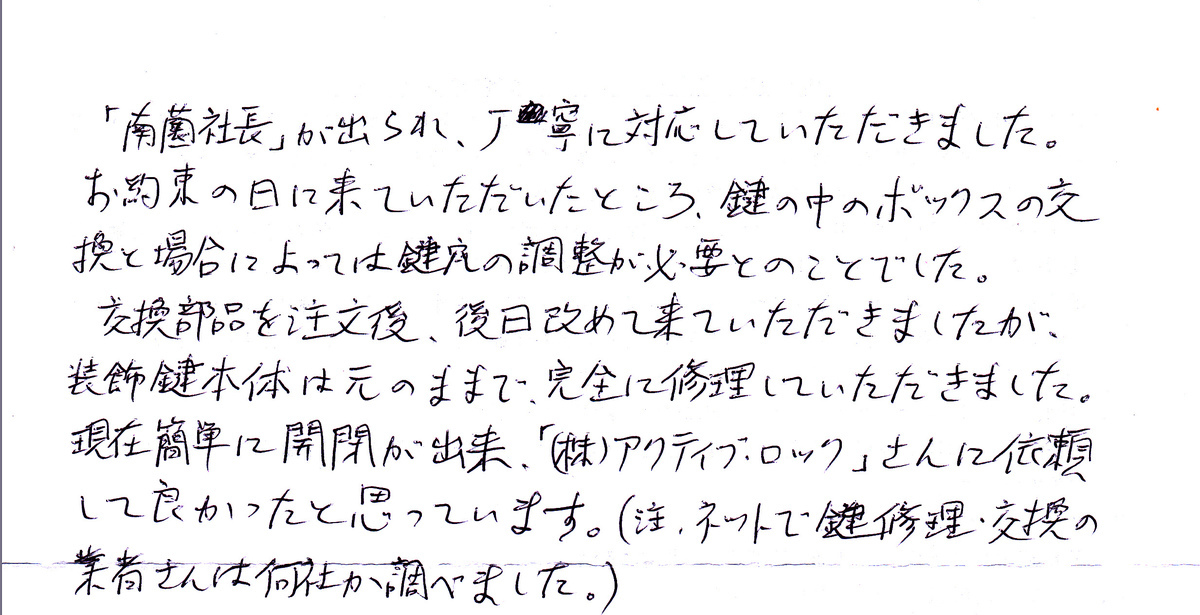 「南薗社長」が出られ、丁寧に対応していただきました。
お約束の日に来ていただいたところ、鍵の中のボックスの交
換と場合によっては鍵穴の調整が必要とのことでした。
交換部品を注文後、後日改めて来ていただきましたが、
装飾鍵本体は元のままで、完全に修理していただきました。
現在簡単に開閉が出来、「(株)アクティブ・ロック」さんに依頼
して良かったと思っています。(注.ネットで鍵修理・交換の
業者さんは何社か調べました。)